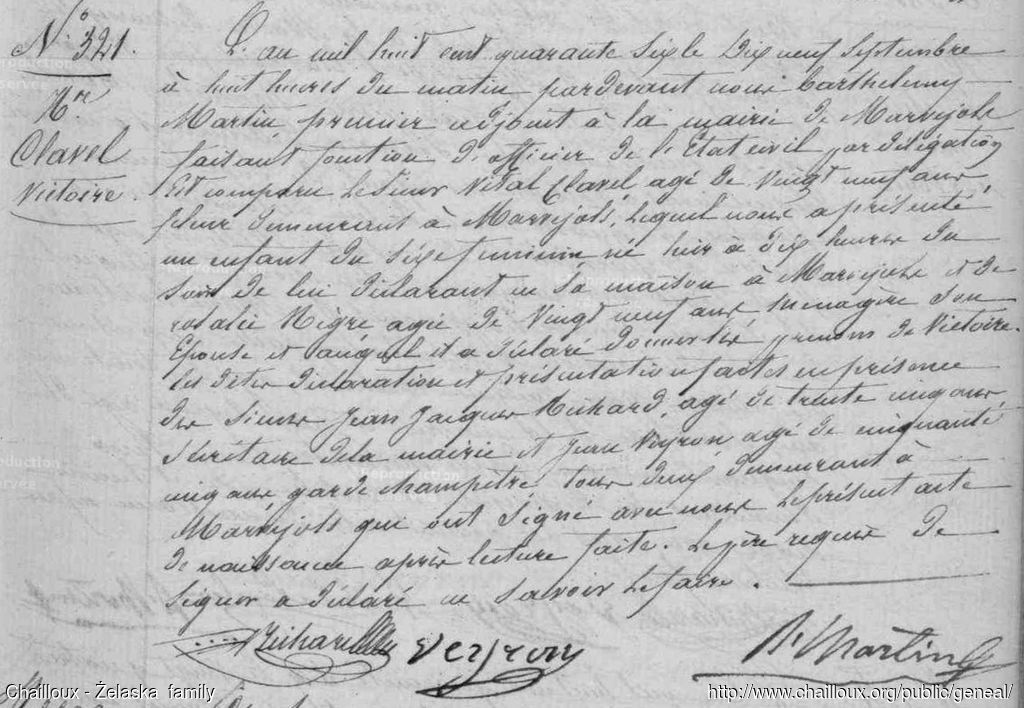 N.º 321.
Nce
Clavel
Victoire.
L'an mil huit cent quarante six le Dix neuf Septembre
à huit heures du matin pardevant nous Barthelemy
Martin, premier adjoint à la mairie de Marvejols
faisant fonction d'officier de l'Etat civil par délégation
Est comparu le Sieur Vital Clavel agé de vingt neuf ans,
fileur demeurant à Marvejols, lequel nous a présenté
un enfant du sexe féminin né hier à dix heures du
soir de lui déclarant en sa maison à Marvejols et de
rosalie Nègre agée de vingt neuf ans ménagère son
Epouse et auquel il a déclaré donner les prénoms de Victoire.
les dites déclaration et présentation faites en présence
des Sieurs Jean Jacques Richard, agé de trente cinq ans,
Sécrétaire de la mairie et Jean Veyron, agé de cinquante
cinq ans garde champêtre tous deux demeurant à
Marvejols qui ont signé avec nous le présent acte
de naissance après lecture faite. Le père requis de
signer a déclaré ne savoir le faire.
Richard
Veyron
Bmy Martin
Chailloux - Żelaska family
http://www.chailloux.org/public/geneal/